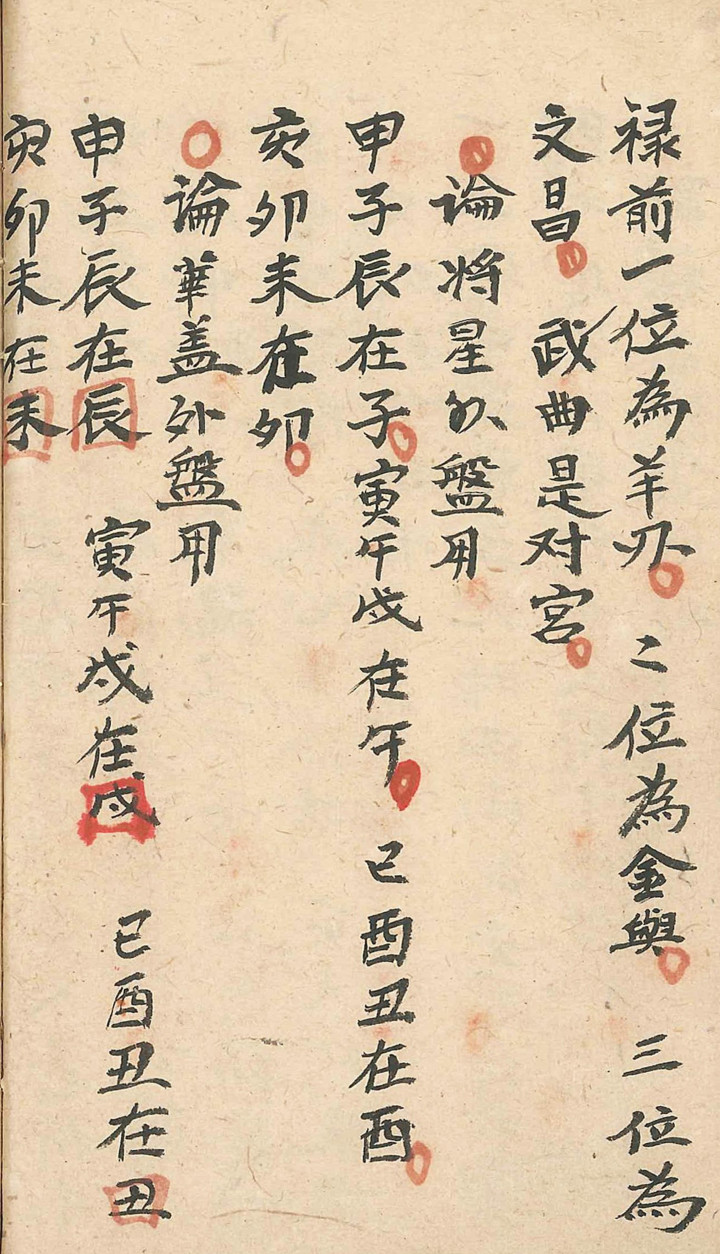 禄前一位為羊刃 二位為金輿 三位為
文昌 武曲是对宮
論将星外盤用
甲子辰在子寅午戌在午 巳酉丑在酉
亥卯未在卯
論華盖外盤用
申子辰在辰 寅午戌在戌 巳酉丑在丑
亥卯未在未